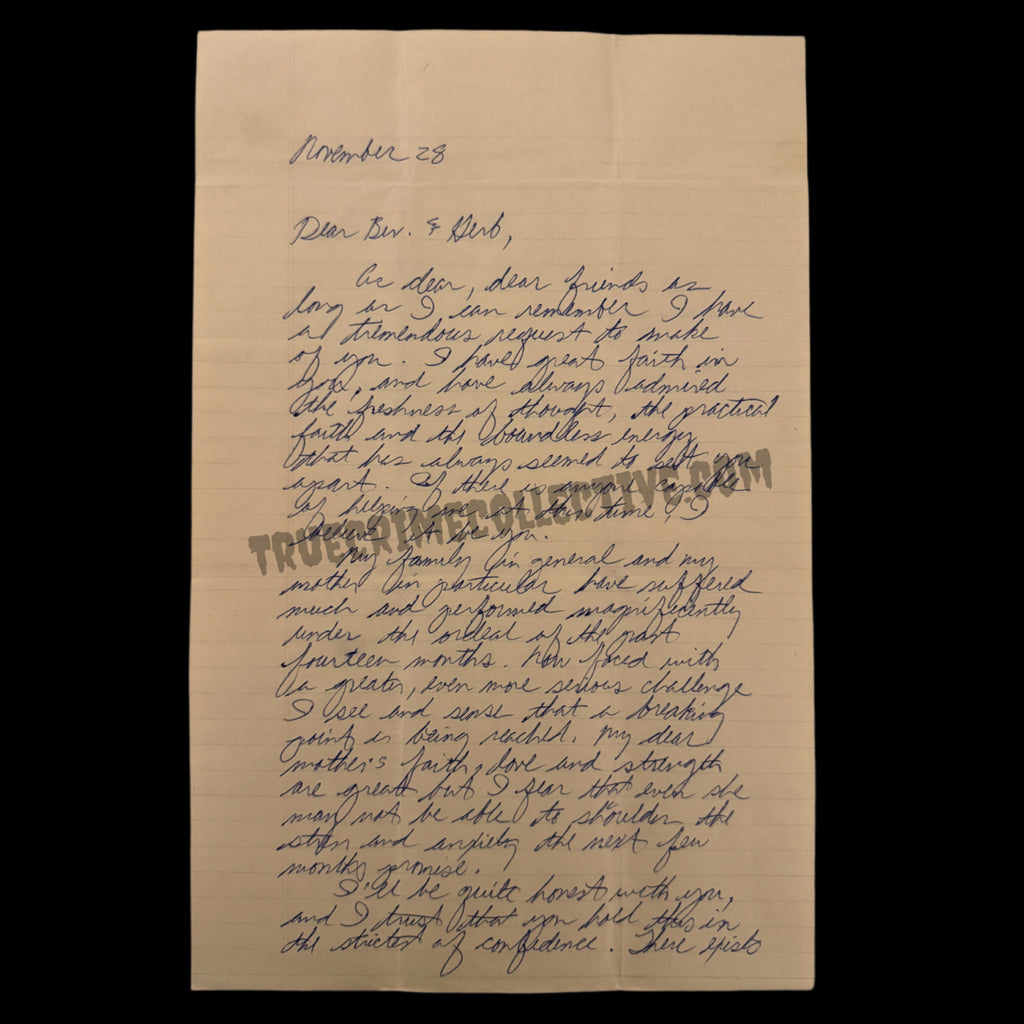 November 28
Dear Bev. & Herb,
As dear, dear friends as
long as I can remember I have
a tremendous request to make
of you. I have great faith in
you, and have always admired
the freshness of thought, the practical
faith and the boundless energy
that has always seemed to set you
apart. If there is anyone capable
of helping me at this time, I
believe it be you.
TRUECRIMECOLLECTIVE.COM
My family in general and my
mother in particular have suffered
much and performed magnificently
under the ordeal of the past
fourteen months. Now faced with
a greater, even more serious challenge
I see and sense that a breaking
point is being reached. My dear
mother's faith, love and strength
are great but I fear that even she
may not be able to shoulder the
strain and anxiety the next few
months promise.
I'll be quite honest with you,
and I trust that you hold this in
the strictest of confidence. There exists